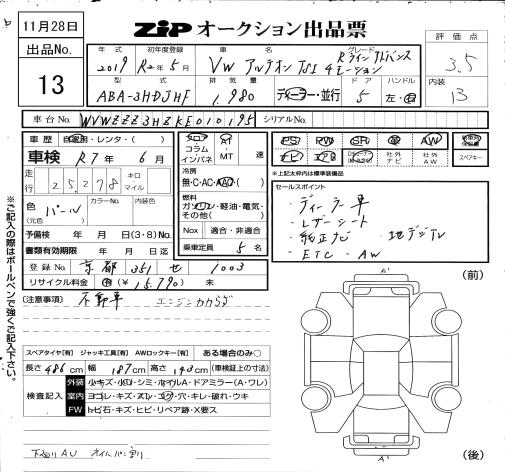 11月28日
ZiP オークション出品票
出品No. 13
年式 2019
初年度登録 R2年5月
車名 VW アルテオン TSI 4モーション
グレード Rライン アドバンス
評価点 3.5
型式 ABA-3HDJHF
排気量 1,980
ディーラー・並行
ドア 5
ハンドル 左・右
内装 B
車台No. WVWZZZ3HZKE010195
シリアルNo.
車歴 自家用・レンタ・( )
車検 R7年6月
走行 25,278 キロ マイル
色(元色) パール
カラーNo.
内装色
予備検 年 月 日(3・8)No.
書類有効期限 年 月 日迄
登録No. 京都 351 せ 1003
リサイクル料金 (¥15,790) 未
フロア コラム インパネ
AT MT 速
冷房 無・C・AC・AAC・( )
燃料 ガソリン・軽油・電気・その他( )
Nox 適合・非適合
乗車定員 5名
PS PW SR 革 AW
ナビ 社外AW
スペアキー
※上記太枠内は標準装備品
セールスポイント
・ディーラー車
・レザーシート
・純正ナビ ・地デジTV
・ETC ・AW
(注意事項) 不動車 エンジンかからず
※ご記入の際はボールペンで強くご記入下さい。
スペアタイヤ[有] ジャッキ工具[有] AWロックキー[有] ある場合のみ○
長さ 486cm 幅 187cm 高さ 143cm (車検証上の寸法)
検査記入
外装 小キズ・小凹・シミ・ホイルA・ドアミラー(A・ワレ)
室内 ヨゴレ・キズ・スレ・コゲ・穴・キレ・破れ・ウキ
FW トビ石・キズ・ヒビ・リペア跡・X要ス
下回りAU オイルパン割
(前)
A'
A'
(後)